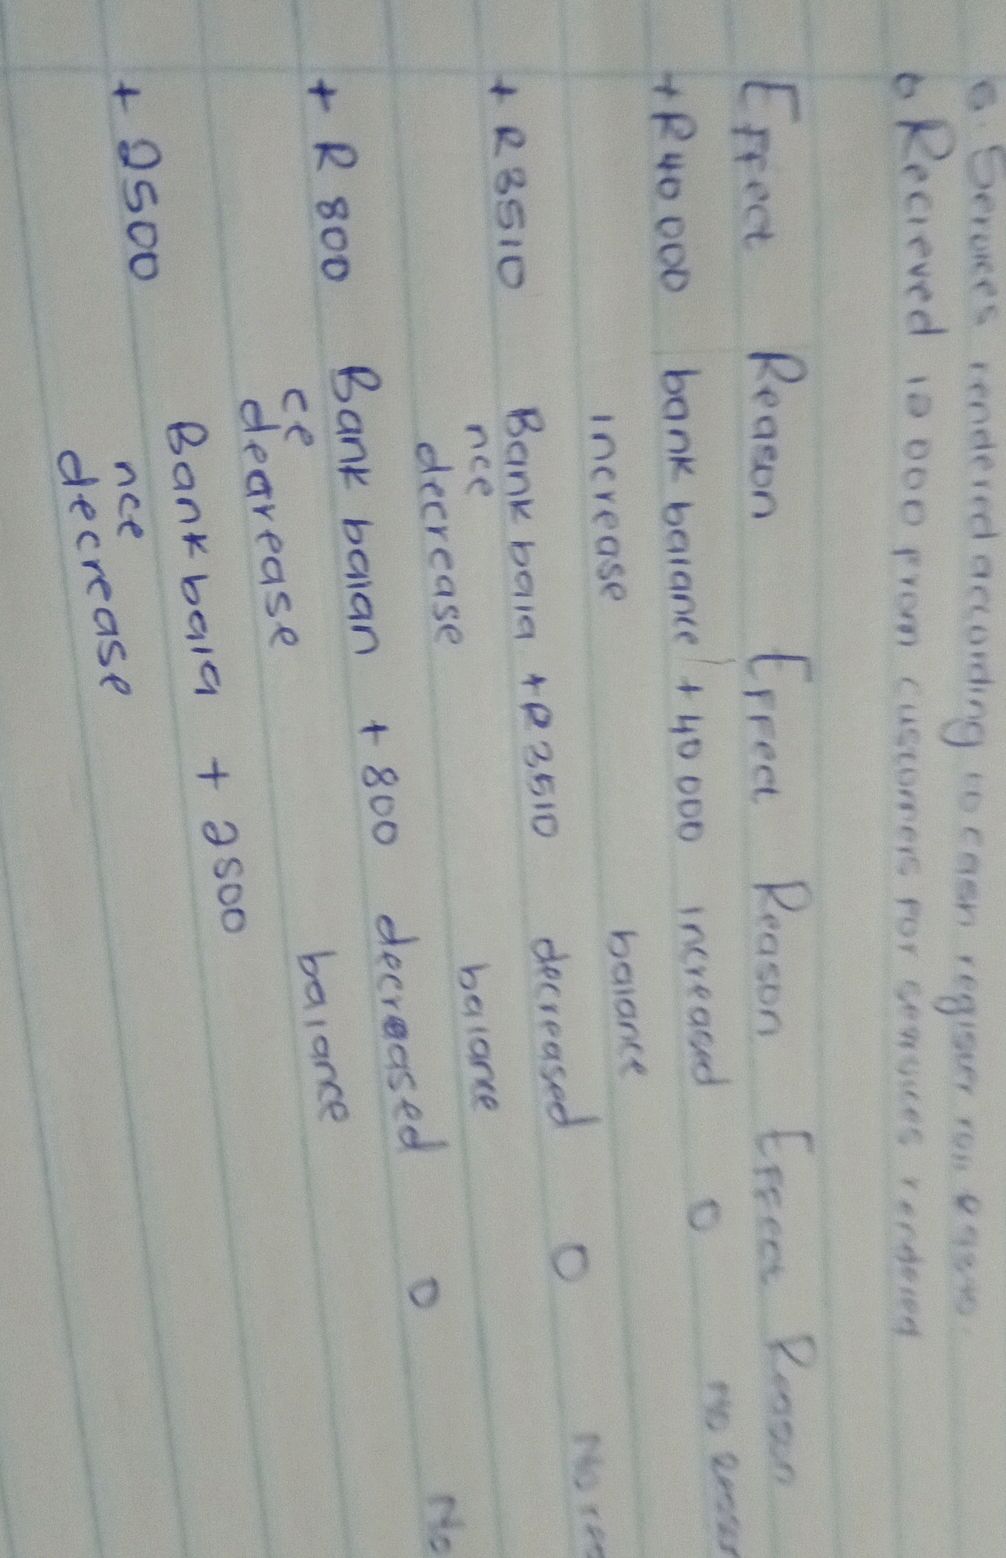 6. Services rendered according to cash register roll
6 Recieved 10 000 from customers for services rendered
Effect Reason Effect Reason Effect Reason
+R40 000 bank balance +40 000 increased 0 No
increase balance
+ R3510 Bank bala +R3510 decreased 0 No
nce balance
decrease
+ R 800 Bank balan + 800 decreased 0 No
ce balance
decrease
+ 2500 Bank bala + 2500
nce
decrease